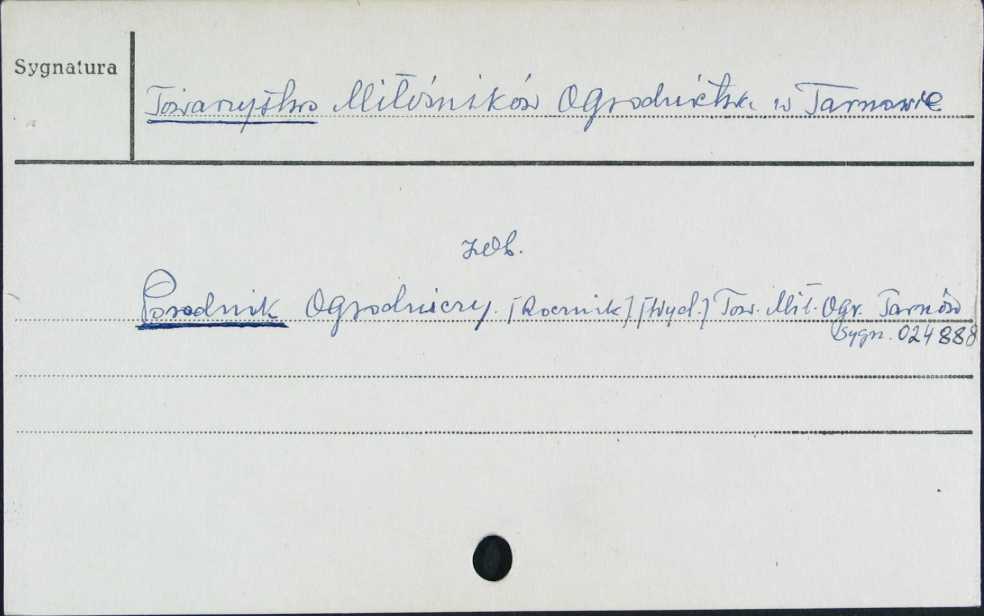 Sygnatura
Towarzystwo Miłośników Ogrodnictwa w Tarnowie
zob.
Poradnik Ogrodniczy. [Rocznik] [Wyd.] Tow. Mił. Ogr. Tarnów
Sygn. 024888